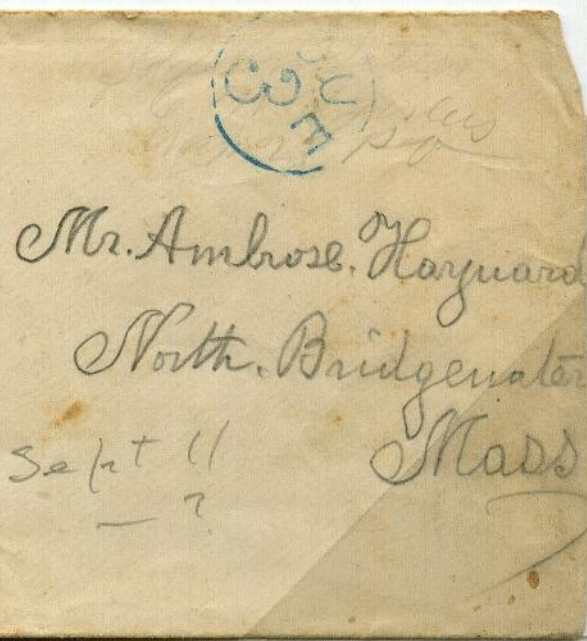 DUE
3
Mr. Ambrose. Hayward
North. Bridgewater
Mass
Sept 11
?